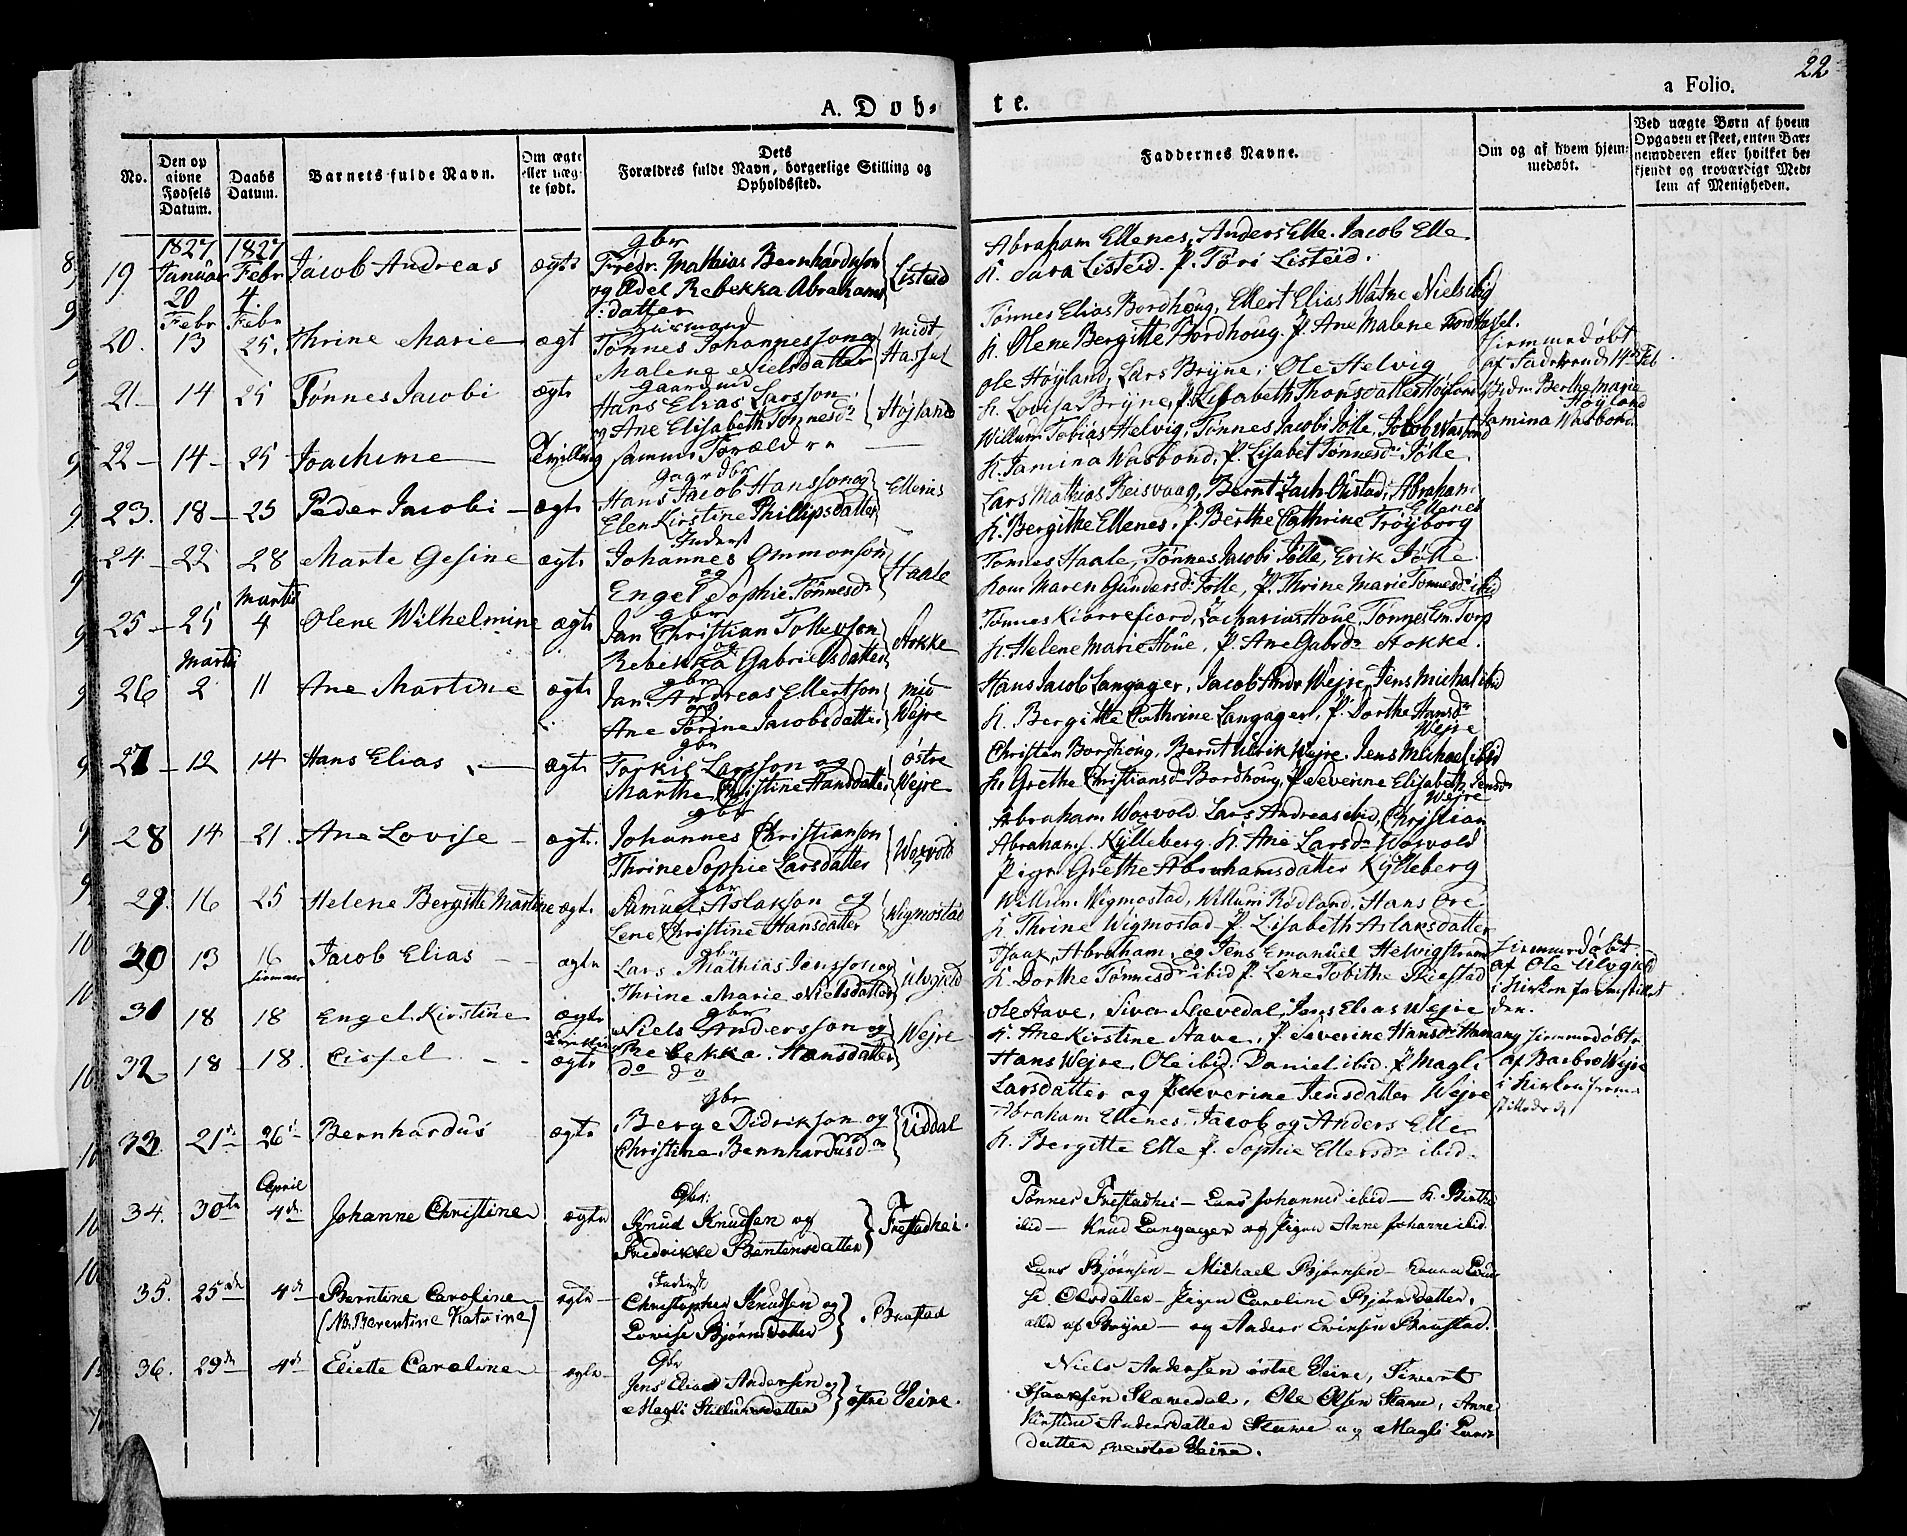 22
A. Døb-
te.
a Folio.
No.
Den op
givne
Fødsels
Datum.
Daabs
Datum.
Barnets fulde Navn.
Om ægte
eller uæg-
te født.
Dets
Forældres fulde Navn, borgerlige Stilling og
Opholdssted.
Faddernes Navne.
Om og af hvem hjem-
medøbt.
Ved uægte Børn af hvem
Opgaven er skeet, enten Bar-
nemoderen eller hvilket be-
kjendt og troværdigt Med-
lem af Menigheden.
1827 1827
19 Januar 20 Febr 4 Jacob Andreas ægte
gbr
Fredr. Mathias Bernhardsson
og Adel Rebekka Abrahams
datter
Listeid
Abraham Ellenes, Anders Elle. Jacob Elle
K. Sara Listeid. P. Tøri Listeid.
20. Febr 13 Febr 25. Thrine Marie ægt
huusmand
Tønnes Johannesson og
Malene Nielsdatter
midt
Hassel
Tønnes Elias Bordhoug, Ellert Elias Watne Niels ibid
K. Olene Bergitte Bordhoug. P. Ane Malene Nord Hassel.
21 - 14 25 Tønnes Jacobi ægte
gaardmd
Hans Elias Larsson
og Ane Elisabeth Tønnesdr
Højland
Ole Høyland, Lars Bryne, Ole Helvig
K. Lovisa Bryne, P. Elisabeth Thorsdatter Høyland
hjemmedøbt
Høyland
22 - 14 - 25 Joachime Tvilling samme Forældre
Willum Tobias Helvig, Tønnes Jacobi Jølle, Jacob Wasbond
K. Jamina Wasbond, P. Lisabet Tønnesdr Jølle
Jamina Wasbond
23. 18 - 25 Peder Jacobi - ægte
gaardbr
Hans Jacob Hansson og
Elen Kirstine Phillipsdatter
Ellenes
Lars Mathias Reisvaag, Bernt Zach. Oustad, Abraham
Ellenes
K. Bergithe Ellenes, P. Berthe Cathrine Trøyborg
24 - 22 28 Marte Gesine ægte
Inderst
Johannes Ommonson
og
Engel Sophie Tønnesdr
Haale
Tønnes Haale, Tønnes Jacobi Jølle, Erik Jølle
Kone Maren Gundersdr Jølle, P. Thrine Marie Tønnesdr ibid
25 - 25 Martii 4 Olene Wilhelmine ægte
gbr
Jan Christian Tollevson
og
Rebekka Gabrielsdatter
Stokke
Tønnes Kiørrefiord, Zacharias Houe, Tønnes Em. Torp
K. Helene Marie Houe, P. Ane Gabrdr Stokke.
26 Martii 2 11 Ane Martine ægte
gbr
Jan Andreas Ellertson
og
Ane Torine Jacobsdatter
mid
Wejre
Hans Jacob Langager, Jacob Andr Wejre, Jens Michal ibid
K. Bergitte Cathrine Langager, P. Dorthe Hansdr
Wejre
27 - 12 14 Hans Elias ægte
gbr
Torkil Larsson og
Marthe Christine Hansdatter
østre
Wejre
Christen Bordhoug, Bernt Ulrik Wejre. Jens Michael ibid
K. Grethe Christiansdr Bordhoug, P. Severine Elisabeth Jensdr
Wejre
28 14 21. Ane Lovise - ægte.
gbr
Johannes Christianson
Thrine Sophie Larsdatter
Worvold
Abraham Worvold Lars Andreas ibid, Christian
Abrahams. Kylleberg, K. Ane Larsdr Worvold
Pige Grethe Abrahamsdatter Kylleberg
29. 16 25 Helene Bergitte Martine ægte
gbr
Samuel Aslakson og
Lene Christine Hansdatter
Wigmostad
Willum Wigmostad, Willum Rødland, Hans Ore
K. Thrine Wigmostad P. Lisabeth Aslaksdatter
30 13 16 hiemme Jacob Elias - - ægte
gbr
Lars Mathias Jensson og
Thrine Marie Nielsdatter
Ulvgield
Isaac, Abraham, og Jens Emanuel Helvigstrand
K. Dorthe Tønnesdr ibid P. Lene Tobithe Skiestad
hiemmedøbt
af Ole Ulvgield
i Kirken fremstillet
den.
31 18 18 Engel Kirstine ægte
gbr
Niels Andersson og
Rebekka Hansdatter
Wejre
Ole Stave, Siver Slevedal, Jens Elias Wejre
K. Ane Kirstine Stave, P. Severine Hansdr
32 18 18. Cissel - - ægte
do do
Hans Wejre, Ole ibid. Daniel ibid. P. Magli
Larsdatter og P. Severine Jensdatter Wejre
hiemmedøbt
af Barbro Wejre
i Kirken frem
stillede
33. 21de 26de Bernhardus ægte
gbr
Berge Didrikson og
Christine Bernhardusdr
Uddal
Abraham Ellenes, Jacob og Anders Elle
K. Bergitte Elle P. Sophie Ellersdr ibid
34. 30te April 4de Johanne Christine ægte
Gbr.
Knud Knudsen og
Fredrikke Berntensdatter
Frestadhei.
Tønnes Frestadhei - Lars Johannes ibid - K. Birthe
ibid - Knud Langager og Pigen Anne Johanne ibid.
35. 25de 4de Berntine Caroline ægte
(NB. Berentine Katrine)
Inderst
Christopher Knudsen og
Lovise Bjørnsdatter
Braastad
Lars Bjørnsen - Michael Bjørnsen - Konen Loui-
se Olsdatter - Pigen Caroline Bjørnsdatter,
alle af Bryne - og Anders Evensen Braastad.
36. 29de 4de Eliette Caroline ægte
Gbr
Jens Elias Andersen og
Magli Sillumsdatter
østre Veire.
Niels Andersen østre Veire, Sivert
Isaacsen Slævedal, Ole Olsen Stave, Anne
Kirstine Andersdatter Stave og Magli Lars-
datter, vestre Veire.